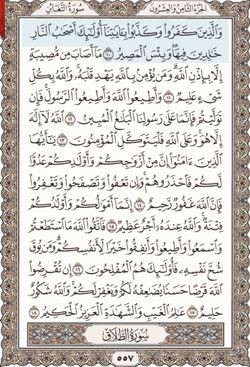 الجزء الثامن والعشرون سورة التغابن
وَٱلَّذِينَ كَفَرُوا۟ وَكَذَّبُوا۟ بِـَٔايَـٰتِنَآ أُو۟لَـٰٓئِكَ أَصْحَـٰبُ ٱلنَّارِ
خَـٰلِدِينَ فِيهَا وَبِئْسَ ٱلْمَصِيرُ ١٠ مَآ أَصَابَ مِن مُّصِيبَةٍ
إِلَّا بِإِذْنِ ٱللَّهِ وَمَن يُؤْمِنۢ بِٱللَّهِ يَهْدِ قَلْبَهُۥ وَٱللَّهُ بِكُلِّ
شَىْءٍ عَلِيمٌ ١١ وَأَطِيعُوا۟ ٱللَّهَ وَأَطِيعُوا۟ ٱلرَّسُولَ فَإِن
تَوَلَّيْتُمْ فَإِنَّمَا عَلَىٰ رَسُولِنَا ٱلْبَلَـٰغُ ٱلْمُبِينُ ١٢ ٱللَّهُ لَآ إِلَـٰهَ
إِلَّا هُوَ وَعَلَى ٱللَّهِ فَلْيَتَوَكَّلِ ٱلْمُؤْمِنُونَ ١٣ يَـٰٓأَيُّهَا
ٱلَّذِينَ ءَامَنُوٓا۟ إِنَّ مِنْ أَزْوَٰجِكُمْ وَأَوْلَـٰدِكُمْ عَدُوًّا
لَّكُمْ فَٱحْذَرُوهُمْ وَإِن تَعْفُوا۟ وَتَصْفَحُوا۟ وَتَغْفِرُوا۟
فَإِنَّ ٱللَّهَ غَفُورٌ رَّحِيمٌ ١٤ إِنَّمَآ أَمْوَٰلُكُمْ وَأَوْلَـٰدُكُمْ
فِتْنَةٌ وَٱللَّهُ عِندَهُۥٓ أَجْرٌ عَظِيمٌ ١٥ فَٱتَّقُوا۟ ٱللَّهَ مَا ٱسْتَطَعْتُمْ
وَٱسْمَعُوا۟ وَأَطِيعُوا۟ وَأَنفِقُوا۟ خَيْرًا لِّأَنفُسِكُمْ وَمَن يُوقَ
شُحَّ نَفْسِهِۦ فَأُو۟لَـٰٓئِكَ هُمُ ٱلْمُفْلِحُونَ ١٦ إِن تُقْرِضُوا۟
ٱللَّهَ قَرْضًا حَسَنًا يُضَـٰعِفْهُ لَكُمْ وَيَغْفِرْ لَكُمْ وَٱللَّهُ شَكُورٌ
حَلِيمٌ ١٧ عَـٰلِمُ ٱلْغَيْبِ وَٱلشَّهَـٰدَةِ ٱلْعَزِيزُ ٱلْحَكِيمُ ١٨
سورة الطلاق
٥٥٧